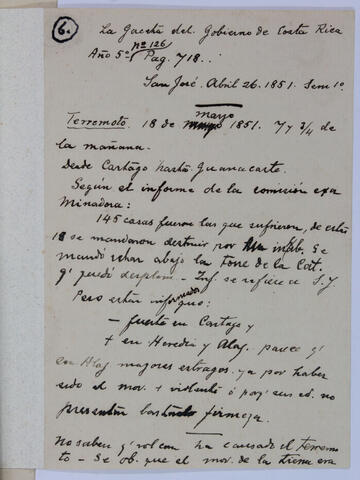 6.
La Gaceta del Gobierno de Costa Rica
nº 126
Año 5º Pag. 718.
San José. Abril 26. 1851. Sem 1º
Terremoto. 18 de marzo 1851. 7 y 3/4 de
la mañana.
Desde Cartago hasta Guanacaste.
Según el informe de la comisión exa
minadora:
145 casas fueron las que sufrieron, de estas
18 se mandaron destruir por inhab. Se
mandó echar abajo la Torre de la Cat.
q' puede desplom. - Inf. se refiere a S.J.
Pero están informados que:
- fuerte en Cartago y
+ en Heredia y Alaj. parece q'
en Alaj mayores estragos. ya por haber
sido el mov. + violento ó porq' sus ed. no
presentan bastante firmeza.
No saben q' volcan ha causado el terremo
to - Se ob. que el mov. de la tierra era